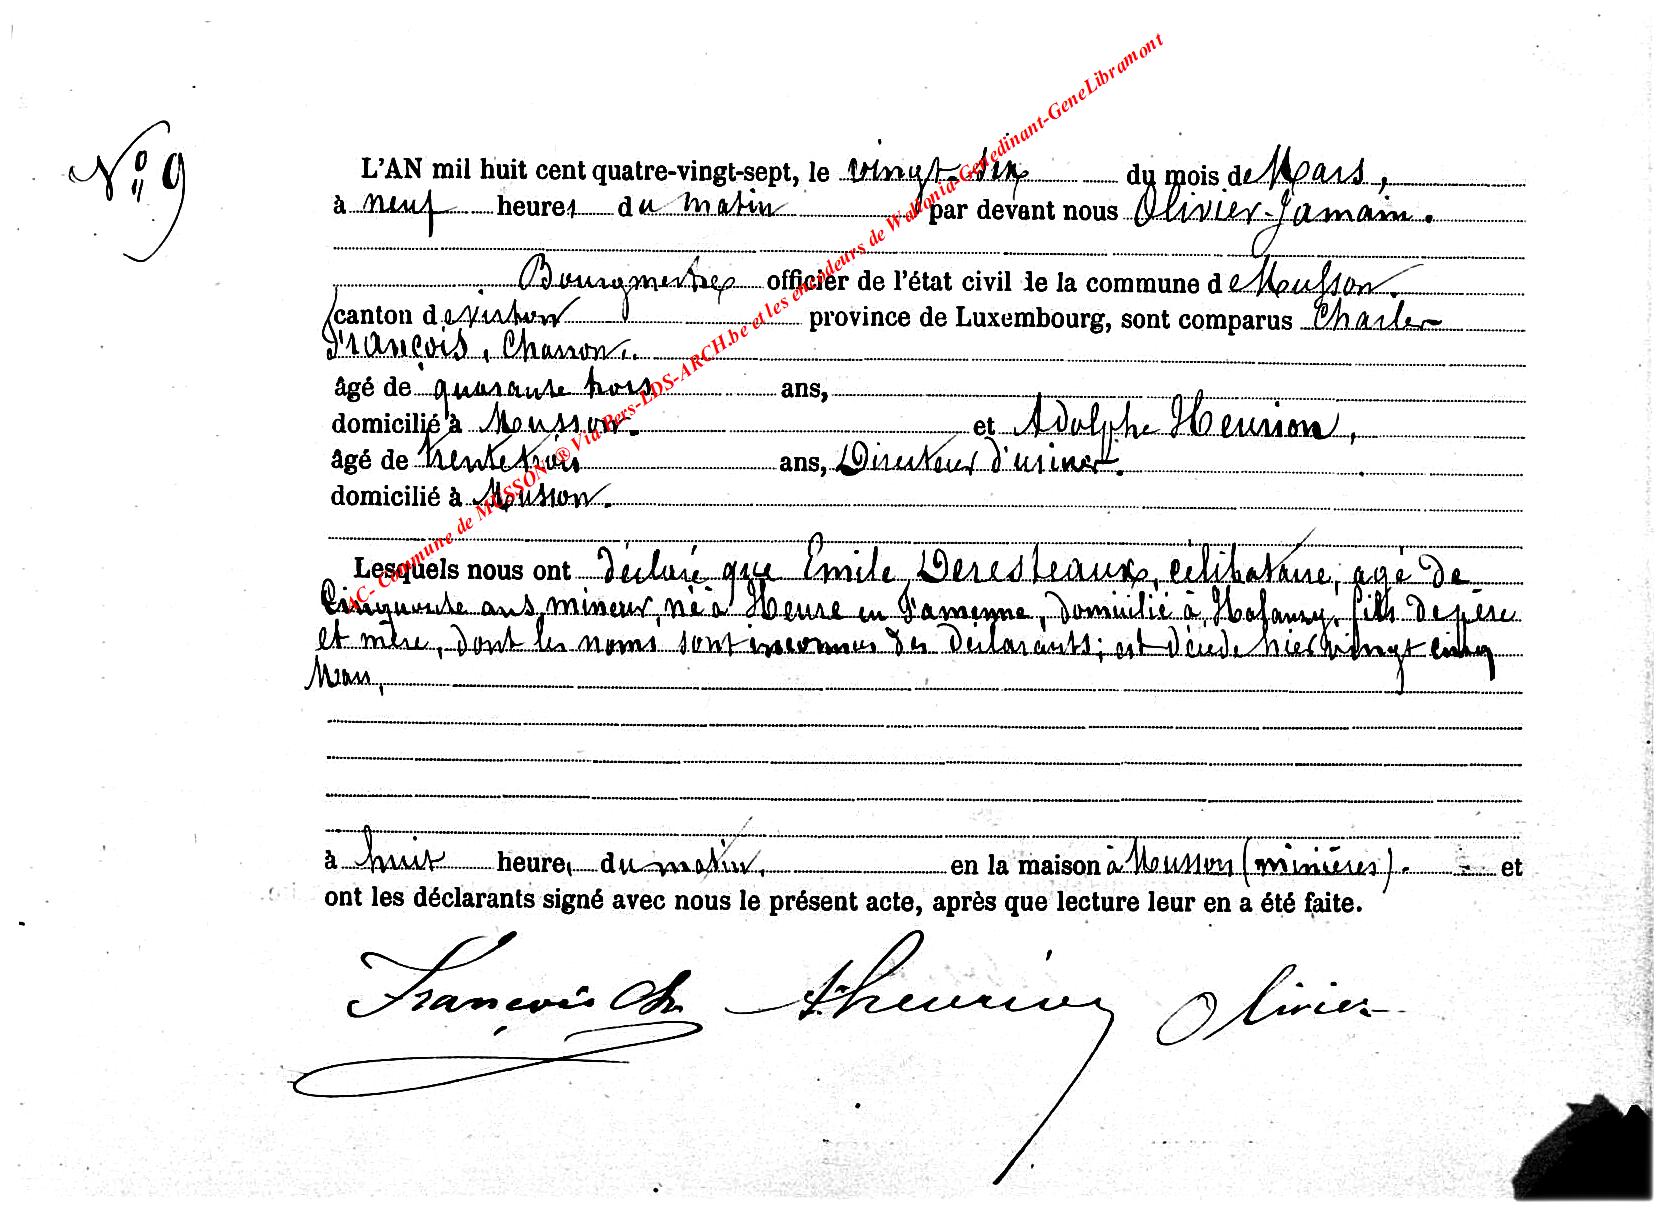 N° 9
L'AN mil huit cent quatre-vingt-sept, le vingt-six du mois de Mars,
à neuf heures du matin par devant nous Olivier-Jamain.
Bourgmestre officier de l'état civil de la commune de Musson.
canton de Virton province de Luxembourg, sont comparus Charles
François, Charron.
âgé de quarante trois ans,
domicilié à Musson. et Adolphe Henrion,
âgé de trente trois ans, Directeur d'usines.
domicilié à Musson.
Lesquels nous ont déclaré que Emile Deresteaux, célibataire, agé de
Cinquante ans, mineur, né à Heure en Famenne, domicilié à Halanzy, fils de père
et mère, dont les noms sont inconnus des déclarants; est décédé hier vingt cinq
Mars,
à huit heures du matin. en la maison à Musson (minières). et
ont les déclarants signé avec nous le présent acte, après que lecture leur en a été faite.
François Ch A. henrion Olivier
AC- Commune de MUSSON ® Via Pers-LDS-ARCH.be et les encodeurs de Wallonia-Genedinant-GeneLibramont